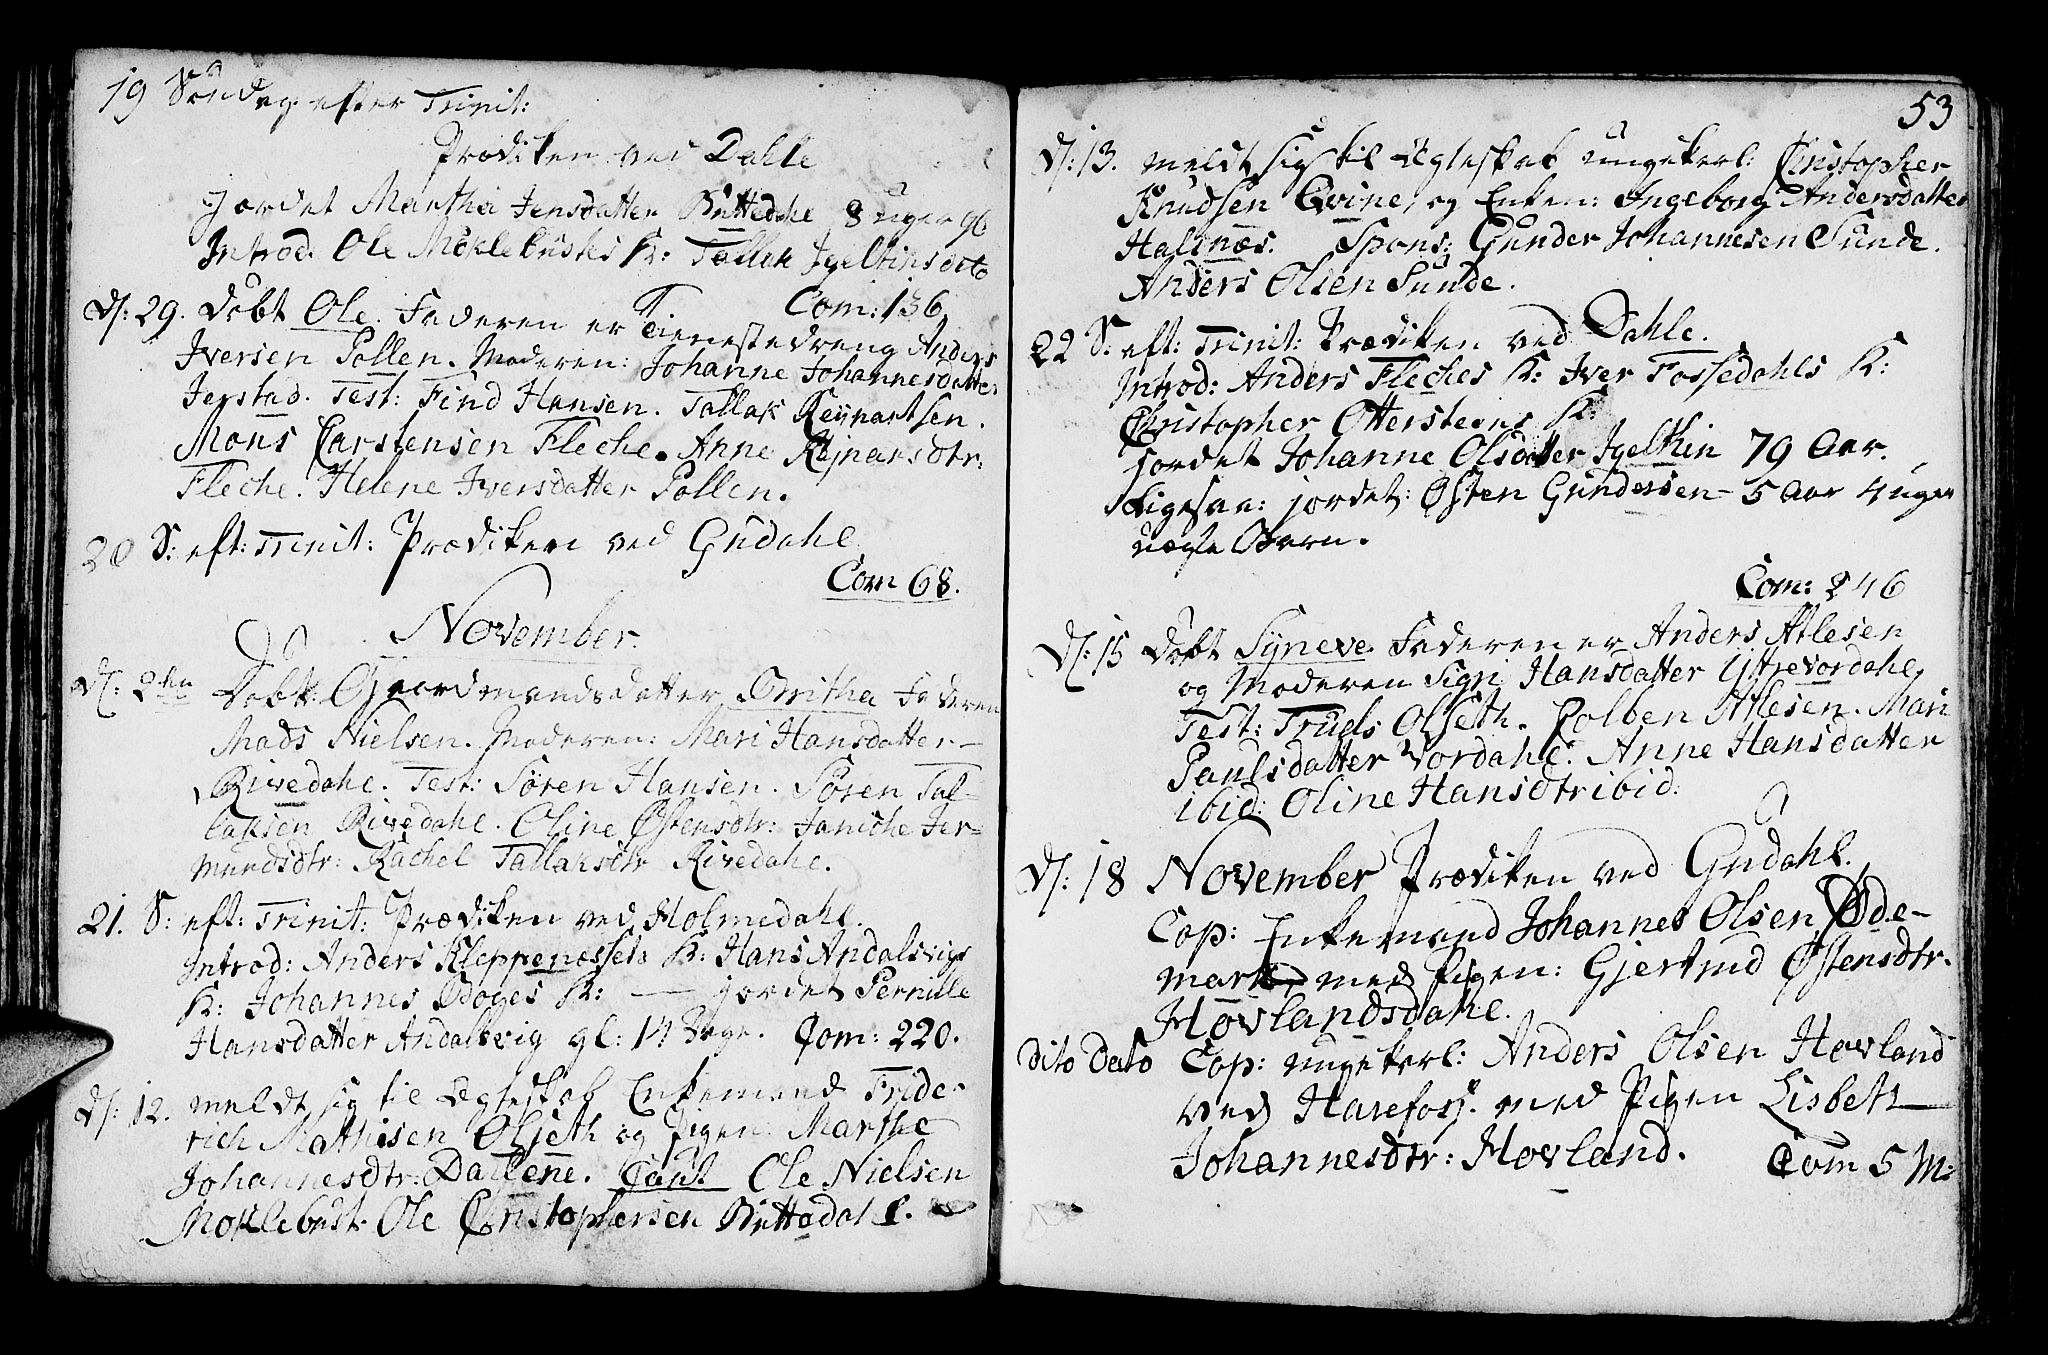 19 Søndag efter Trinit:
Prædiken ved Dahle
Jordet Martha Jensdatter Büttedahl 8 uger
Introd. Ole Møklebustes K: Tallak Igeltins dito
Com: 136
D/: 29. Døbt Ole. Faderen er Tienestedreng Anders
Iversen Pollen. Moderen: Johanne Johannesdatter
Jerstad. Test: Find Hansen. Tallak Reynartsen.
Mons Carstensen Fleche. Anne Rejnarsdtr:
Fleche. Helene Iversdatter Pollen.
20 S: eft: Trinit: Prædiken ved Gudahl
Com 68.
November.
D/: 2den Døbt Gaardmandsdatter Britha Faderen
Mads Nielsen. Moderen: Mari Hansdatter
Rivedahl. Test: Søren Hansen. Søren Tal-
laksen Rivedahl. Oline Østensdtr: Janiche Jer-
mundsdtr: Rachel Tallaksdtr Rivedahl.
21. S: eft: Trinit: Prædiken ved Holmedahl.
Introd: Anders Kleppenæssets K: Hans Andalsvigs
K: Johannes Bøges K: — jordet Pernille
Hansdatter Andalsvig gl: 14 Dage. Com: 220.
D/: 12. meldt sig til Egteskab Enkemand Fride-
rich Mathisen Olseth og Pigen Marthe
Johannesdtr: Dallene. Caut Ole Nielsen
Møklebust. Ole Christophersen Büttedahl.
53
D/: 13. meldt sig til Egteskab ungekerl: Christopher
Knudsen Qvine, og Enken: Ingeborg Andersdatter
Halsnæs. Spons: Gunder Johannesen Sunde.
Anders Olsen Sunde.
22 S: eft: Trinit: Prædiken ved Dahle.
Introd: Anders Fleches K: Iver Fossedahls K:
Christopher Ottersteens K:
jordet Johanne Olsdatter Igelthin 79 Aar.
Ligesaa: jordet: Østen Gundersen 5 Aar 4 uger
uægte Barn.
Com: 246
D/: 15 Døbt Syneve. Faderen er Anders Atlesen
og Moderen Sigri Hansdatter Yttrevordahl.
Test: Truls Olseth. Colben Atlesen. Mari
Paulsdatter Vordahl. Anne Hansdatter
ibid: Oline Hansdtr ibid:
D/: 18 November Prædiken ved Gudahl.
Cop: Enkemand Johannes Olsen Øde-
mark, med Pigen: Gjertrud Østensdtr.
Hovlandsdahl.
Dito Dato Cop: ungekerl: Anders Olsen Hovland
ved Harefoss. med Pigen Lisbeth
Johannesdtr: Hovland. Com 5 M: